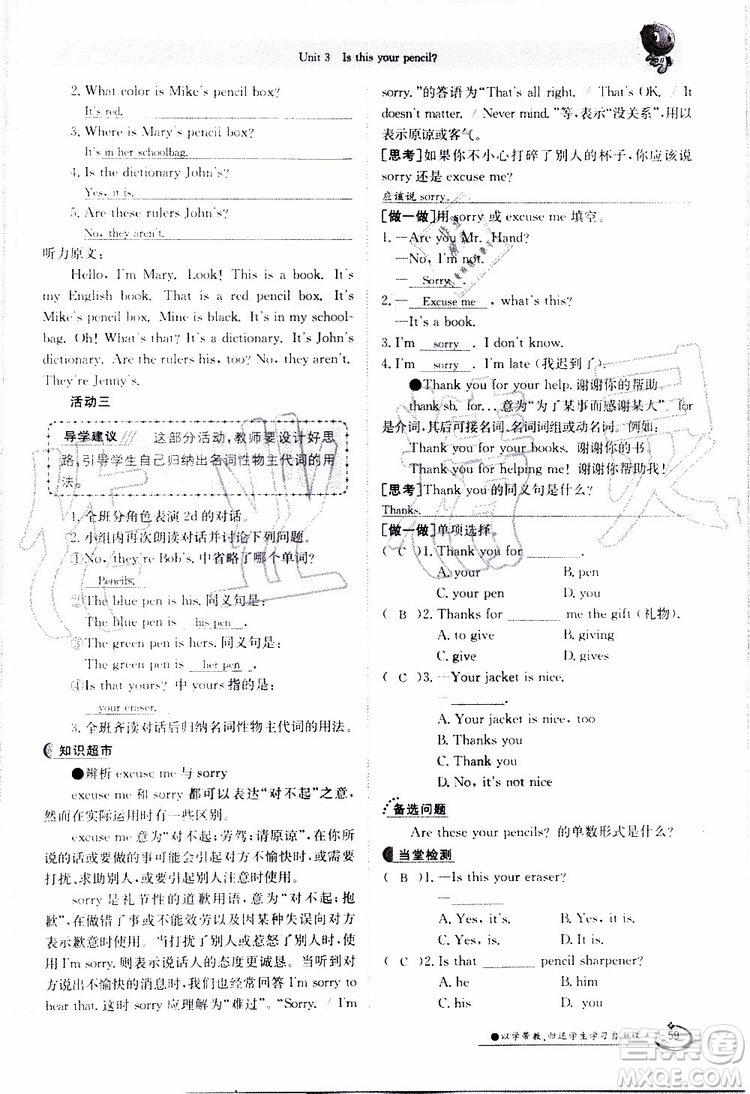 Unit 3 Is this your pencil?
2. What color is Mike's pencil box?
It's red.
3. Where is Mary's pencil box?
It's in her schoolbag.
4. Is the dictionary John's?
Yes, it is.
5. Are these rulers John's?
No, they aren't.
听力原文:
Hello, I'm Mary. Look! This is a book. It's
my English book. That is a red pencil box. It
is Mike's pencil box. Mine is black. It's in my school-
bag. Oh! What's that? It's a dictionary. It's John's
dictionary. Are the rulers his, too? No, they aren't.
They're Jenny's.
活动三
导学建议 这部分活动,教师要设计好思
路,引导学生自己归纳出名词性物主代词的用
法。
1. 全班分角色表演 2d 的对话。
2. 小组内再次朗读对话并讨论下列问题。
①No, they're Bob's. 中省略了哪个单词?
Pencils.
②The blue pen is his. 同义句是:
The blue pen is his pen.
③The green pen is hers. 同义句是:
The green pen is her pen.
④Is that yours? 中 yours 指的是:
your eraser.
3. 全班齐读对话后归纳名词性物主代词的用法。
知识超市
●辨析 excuse me 与 sorry
excuse me 和 sorry 都可以表达“对不起”之意,
然而在实际运用时有一些区别。
excuse me 意为“对不起;劳驾;请原谅”,在你所
说的话或要做的事可能会引起对方不愉快时,或要
打扰、求助别人、引起别人注意时使用。
sorry 是礼节性的道歉用语,意为“对不起;抱
歉”,在做错了事或不能效劳以及因某种失误向对方
表示歉意时使用。当打扰了别人或惹怒了别人时,
使用 I'm sorry. 则表示说话人的态度更诚恳。当听到对
方说出不愉快的消息时,我们经常回答 I'm sorry to
hear that. 这时 sorry 应理解为“难过”。“Sorry. / I'm
sorry. ”的答语为“That's all right. / That's OK. / It
doesn't matter. / Never mind. ”等,表示“没关系”,用以
表示原谅或客气。
[思考]如果你不小心打碎了别人的杯子,你应该说
sorry 还是 excuse me?
应该说 sorry。
[做一做]用 sorry 或 excuse me 填空。
1. —Are you Mr. Hand?
—No, I'm not.
— Sorry.
2. — Excuse me , what's this?
—It's a book.
3. I'm sorry . I don't know.
4. I'm sorry . I'm late (我迟到了).
●Thank you for your help. 谢谢你的帮助。
thank sb. for... 意为“为了某事而感谢某人”。for
是介词,其后可接名词、名词词组或动名词。例如:
Thank you for your books. 谢谢你的书。
Thank you for helping me! 谢谢你帮助我!
[思考]Thank you 的同义句是什么?
Thanks.
[做一做]单项选择。
( C )1. Thank you for ______.
A. your B. pen
C. your pen D. you
( B )2. Thanks for ______ me the gift (礼物).
A. to give B. giving
C. give D. gives
( C )3. —Your jacket is nice.
—______.
A. Your jacket is nice, too
B. Thanks you
C. Thank you
D. No, it's not nice
备选问题
Are these your pencils? 的单数形式是什么?
当堂检测
( B )1. —Is this your eraser?
—______
A. Yes, it's. B. Yes, it is.
C. Yes, this is. D. Yes, is it.
( C )2. Is that ______ pencil sharpener?
A. he B. him
C. his D. her's
●以学带教,归还学生学习自主权
59